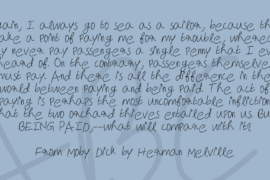 ain, I always go to sea as a sailor, because th
ake a point of paying me for my trouble, wherea
y never pay passengers a single penny that I ev
heard of. On the contrary, passengers themselve
must pay. And there is all the difference in the
world between paying and being paid. The act of
paying is perhaps the most uncomfortable infliction
that the two orchard thieves entailed upon us. Bu
BEING PAID,—what will compare with it?
From Moby Dick by Herman Melville